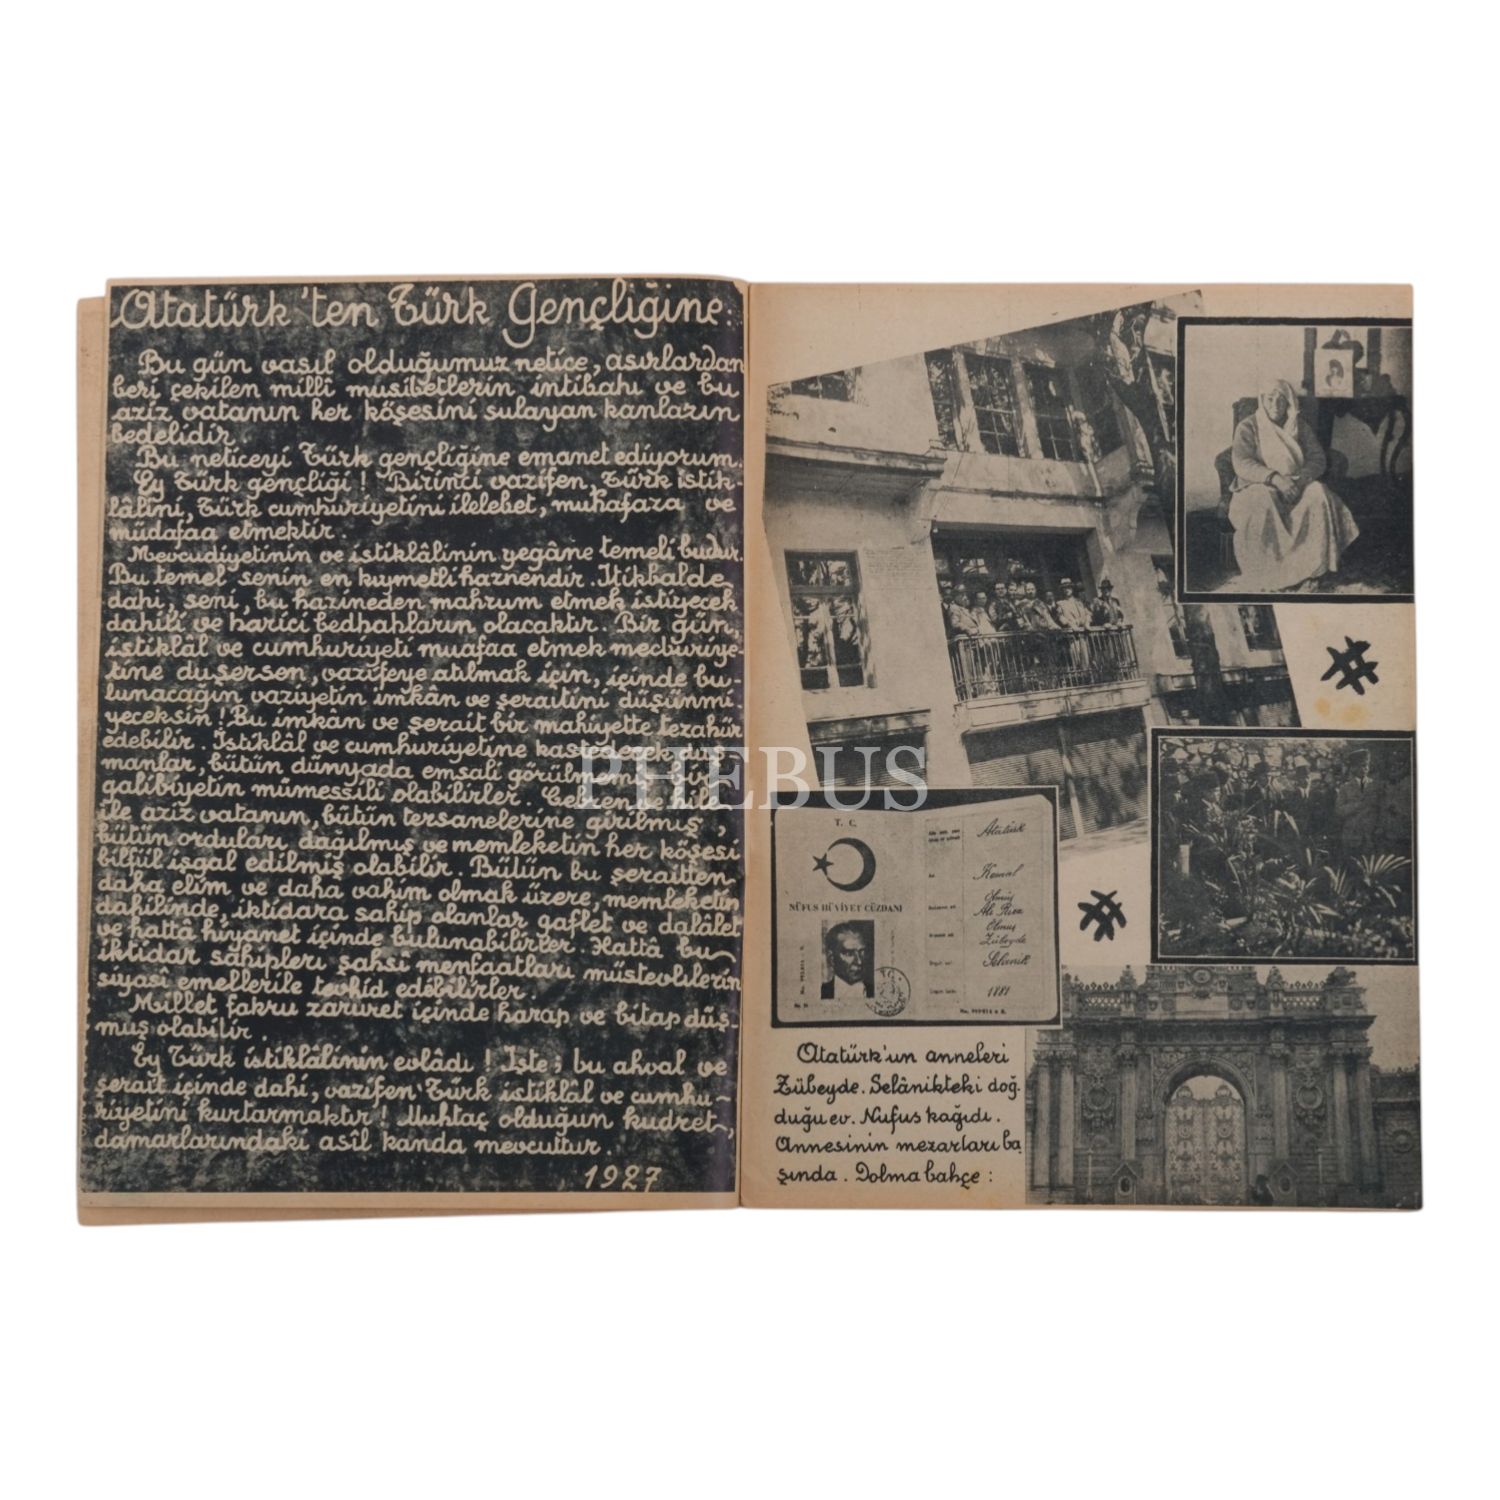 Atatürk'ten Türk Gençliğine:
Bu gün vasıl olduğumuz netice, asırlardan
beri çekilen millî musibetlerin intibahı ve bu
aziz vatanın her köşesini sulayan kanların
bedelidir.
Bu neticeyi Türk gençliğine emanet ediyorum.
Ey Türk gençliği! Birinci vazifen, Türk istik-
lâlini, Türk cumhuriyetini ilelebet, muhafaza ve
müdafaa etmektir.
Mevcudiyetinin ve istiklâlinin yegâne temeli budur.
Bu temel senin en kıymetli haznendir. İtikbalde
dahi, seni, bu hazineden mahrum etmek istiyecek
dahili ve harici bedhahların olacaktır. Bir gün,
istiklâl ve cumhuriyeti muafaa etmek mecburiye-
tine düşersen, vazifeye atılmak için, içinde bu-
lunacağın vaziyetin imkân ve şeraitini düşünmi-
yeceksin! Bu imkân ve şerait bir mahiyette tezahür
edebilir. İstiklâl ve cumhuriyetine kastedecek düş-
manlar, bütün dünyada emsali görülmemiş bir
galibiyetin mümessili olabilirler. Cebren ve hile
ile aziz vatanın, bütün tersanelerine girilmiş,
bütün orduları dağılmış ve memleketin her köşesi
bilfiil işgal edilmiş olabilir. Bütün bu şeraitten
daha elim ve daha vahim olmak üzere, memleketin
dahilinde, iktidara sahip olanlar gaflet ve dalâlet
ve hattâ hiyanet içinde bulunabilirler. Hattâ bu
iktidar sâhipleri şahsi menfaatları müstevlilerin
siyasî emellerile tevhid edebilirler.
Millet fakru zaruret içinde harap ve bitap düş-
muş olabilir.
Ey Türk istiklâlinin evlâdı! İşte; bu ahval ve
şerait içinde dahi, vazifen Türk istiklâl ve cumhu-
riyetini kurtarmaktır! Muhtaç olduğun kudret,
damarlarındaki asîl kanda mevcuttur.
1927
PHEBUS
T. C.
NÜFUS HÜVİYET CÜZDANI
Atatürk
Kemal
Ölmüş
Ali Rıza
Ölmüş
Zübeyde
Selânik
1881
Atatürk'ün anneleri
Zübeyde. Selânikteki doğ-
duğu ev. Nufus kağıdı.
Annesinin mezarları ba
şında. Dolma bahçe: